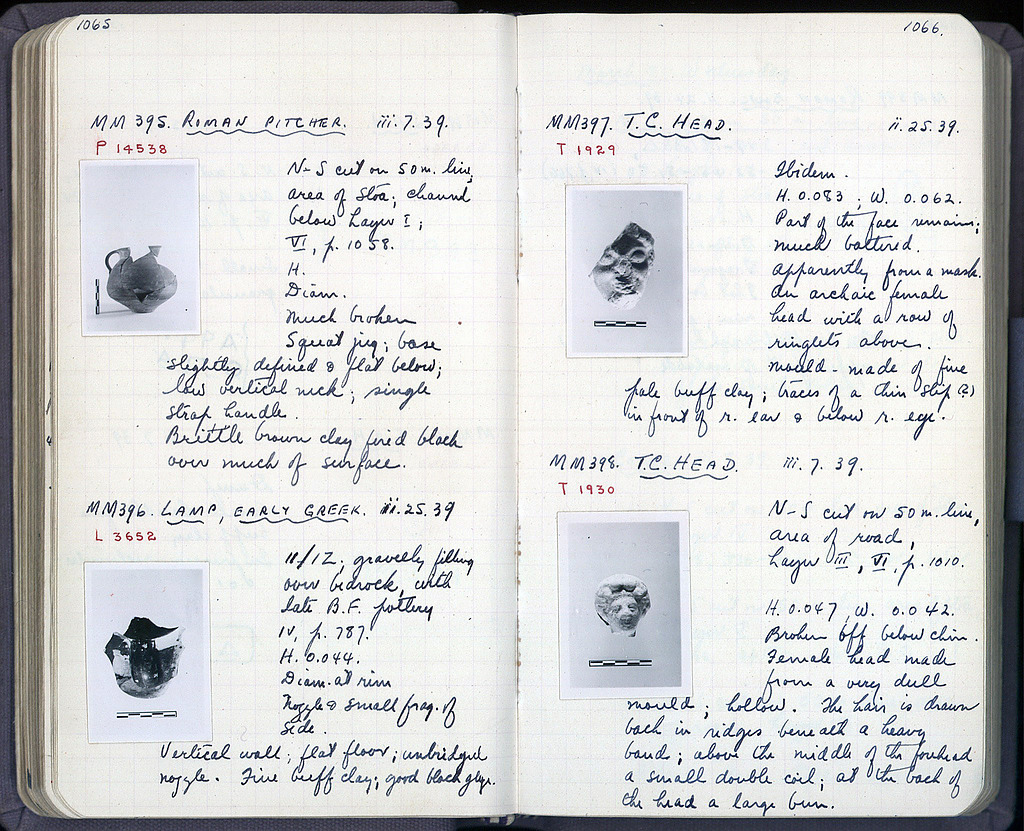 1065
MM 395. ROMAN PITCHER. iii.7.39.
P 14538
N-S cut on 50 m. line,
area of Stoa; channel
below Layer I;
VI, p. 1058.
H.
Diam.
Much broken
Squat jug; base
slightly defined & flat below;
low vertical neck; single
strap handle.
Brittle brown clay fired black
over much of surface.
MM396. LAMP, EARLY GREEK. ii.25.39
L 3652
11/ΙΖ, gravelly filling
over bedrock, with
late B.F. pottery
IV, p. 787.
H. 0.044.
Diam. at rim
Nozzle & small frag. of
side.
Vertical wall; flat floor; unbridged
nozzle. Fine buff clay; good black glaze.
1066.
MM397. T.C. HEAD. ii.25.39.
T 1929
Ibidem.
H. 0.083; W. 0.062.
Part of the face remains;
much battered.
Apparently from a mask.
An archaic female
head with a row of
ringlets above.
Mould-made of fine
pale buff clay; traces of a thin slip (?)
in front of r. ear & below r. eye.
MM398. T.C. HEAD. iii.7.39.
T 1930
N-S cut on 50 m. line,
area of road,
Layer III, VI, p. 1010.
H. 0.047, W. 0.042.
Broken off below chin.
Female head made
from a very dull
mould; hollow. The hair is drawn
back in ridges beneath a heavy
band; above the middle of the forehead
a small double coil; at the back of
the head a large bun.